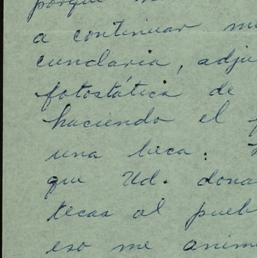 porque
a continuar
cundaria, adju
fotostática de
haciendo el
una beca.
que Ud. dona
tecas al pueb
eso me anim